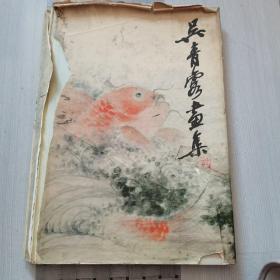 吴青霞画集